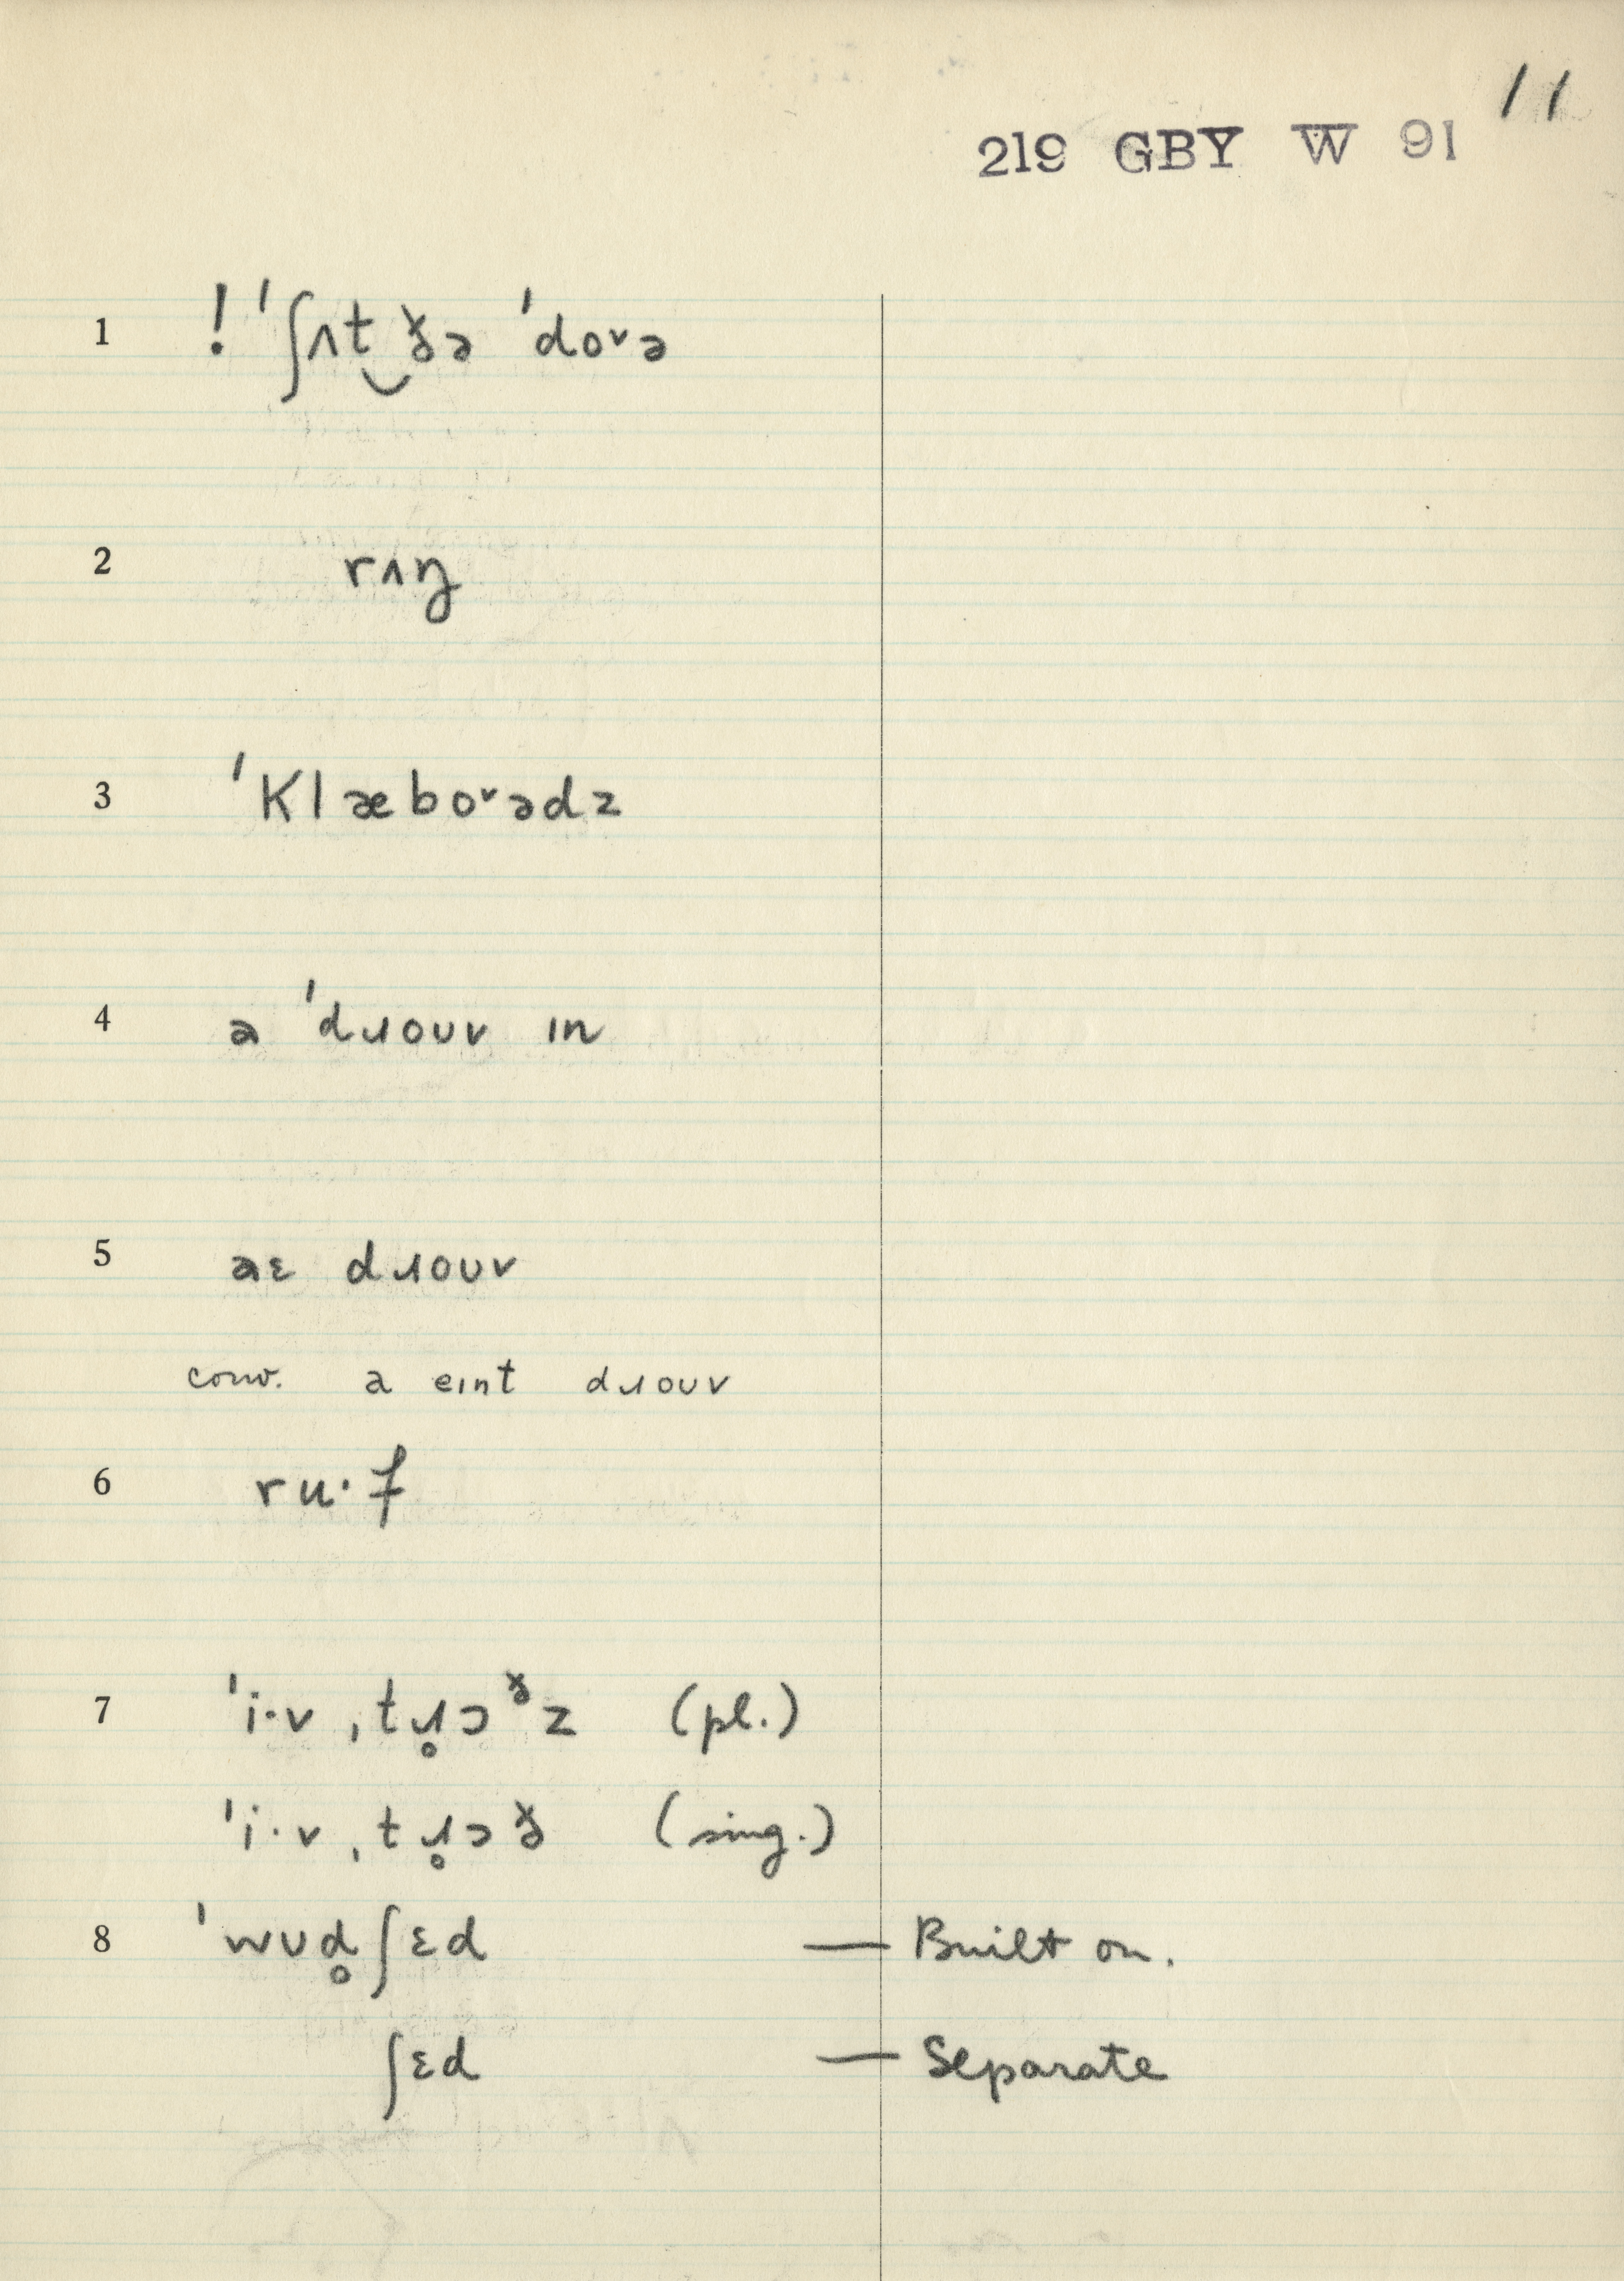 11
219 GBY W 91
1 ! ˈʃʌt‿ðə ˈdoᵛə
2 rʌŋ
3 ˈklæboᵛədz
4 a ˈdɹoʊv ɪn
5 aɛ dɹoʊv
conv. a eɪnt dɹoʊv
6 ru·f
7 ˈi·v ˌtɹ̥ɔᶞz (pl.)
ˈi·v ˌtɹ̥ɔð (sing.)
8 ˈwʊd̥ʃɛd — Built on.
ʃɛd — Separate